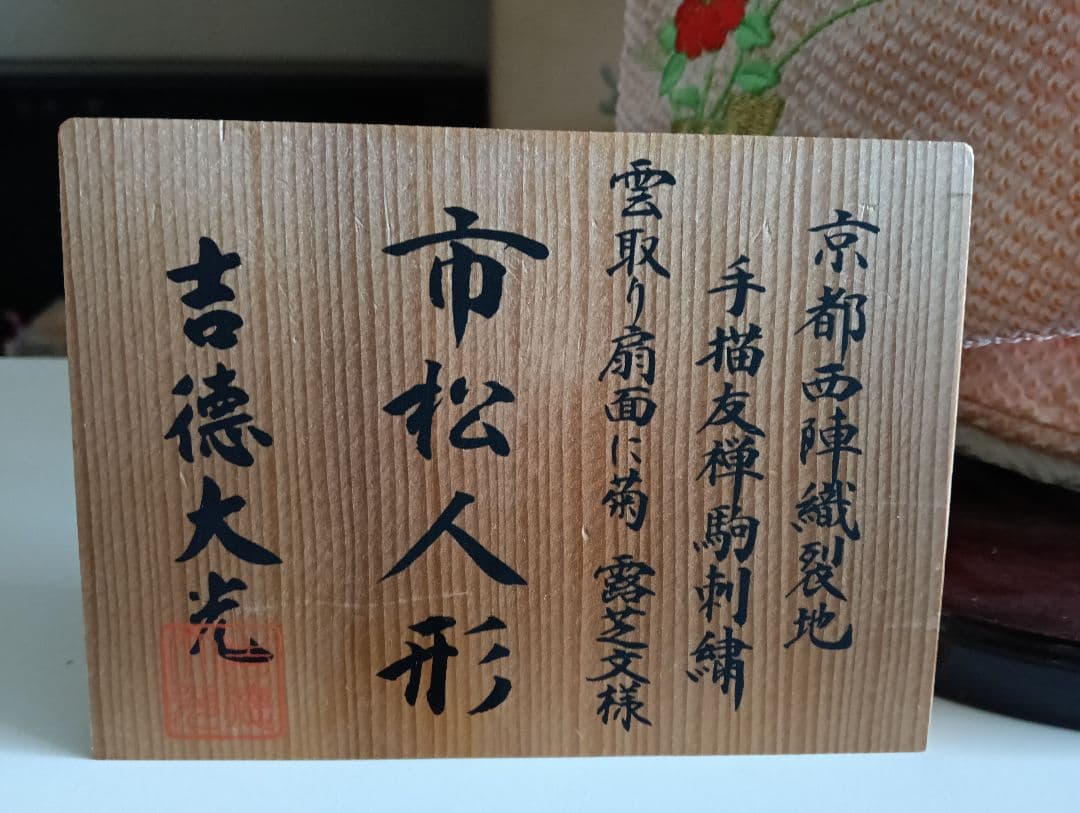 京都西陣織裂地
手描友禅駒刺繍
雲取り扇面に菊 露芝文様
市松人形
吉徳大光